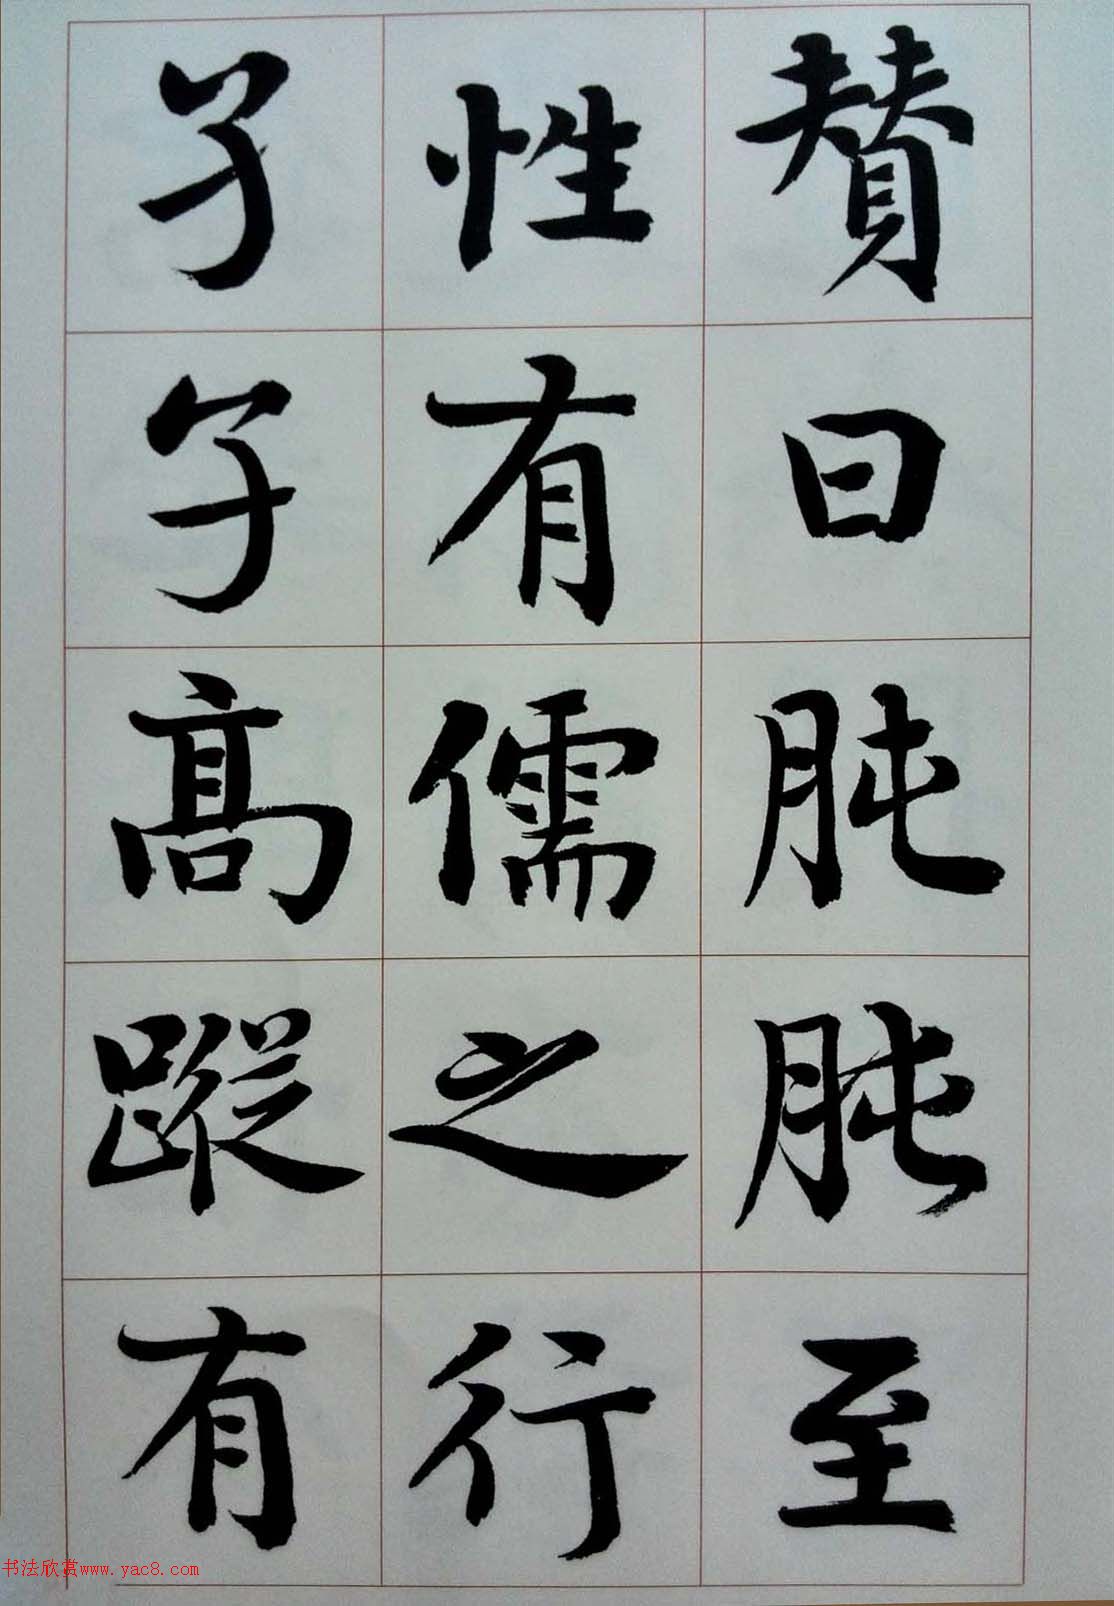 賛曰肫肫至
性有儒之行
孑孑高蹤有
书法欣赏www.yac8.com